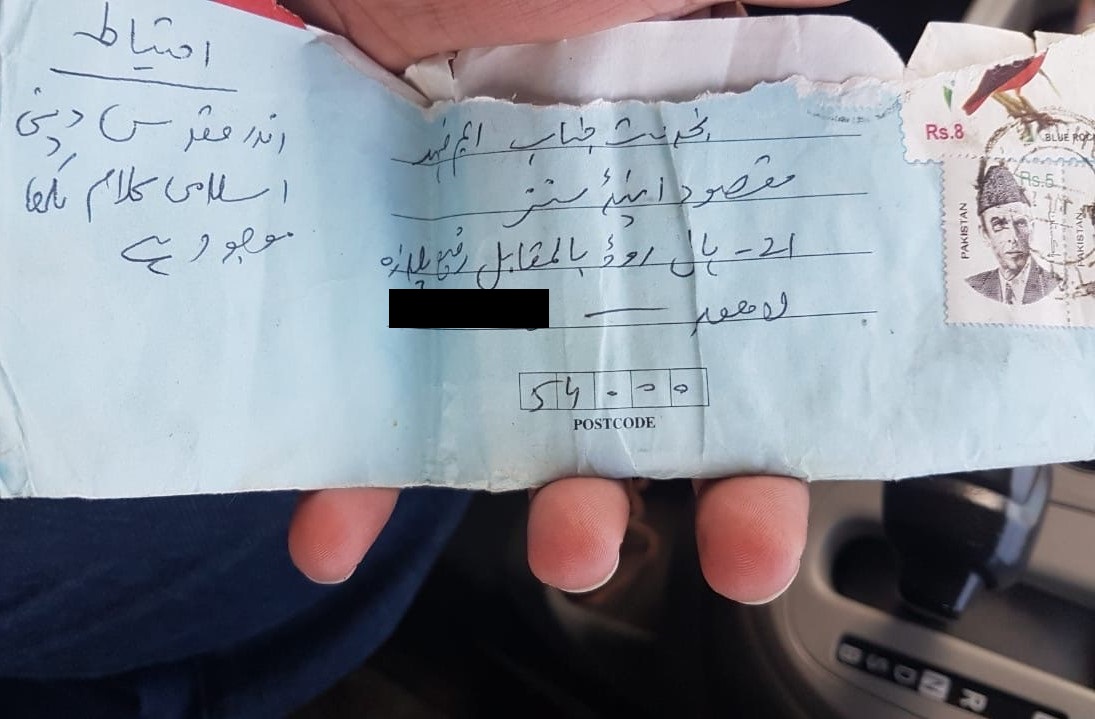 احتیاط
اندر مقدس دینی
اسلامی کلام لکھا
موجود ہے
بخدمت جناب ایم فہد
مقصود اینڈ سنز
21- ہال روڈ بالمقابل رفیع پلازہ
لاہور
54000
POSTCODE
Rs.8
BLUE ROC
Rs.5
PAKISTAN
PAKISTAN